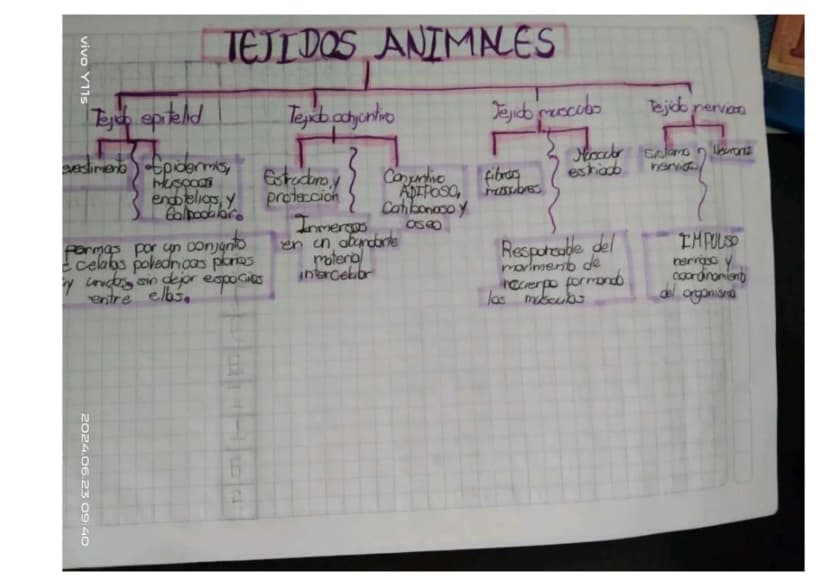 TEJIDOS ANIMALES
Tejido epitelid
Tejido adjuntivo
Tejido musculo
Tejido nervioso
evestimiento
Epidermis,
endotelios, y
Estructura, y
protección
Conjuntivo
ADIPOSO,
y
oseo
fibras
musculares
estriado
Sistema
nervioso
Neurona
formas por un conjunto
celulas poliedricas planas
y unidas, sin dejar espacios
entre ellas.
Inmersas
en un abundante
material
intercelular
Responsable del
movimiento de
formando
los musculos
IMPULSO
nervioso y
coordinamiento
del organismo
vivo Y11s
2024.06.23 09:40